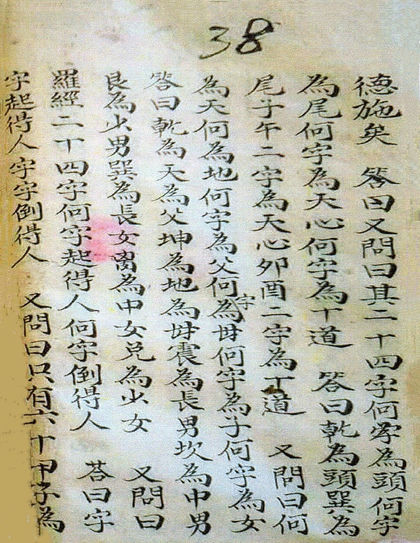 38
德施矣 答曰又問曰其二十四字何字為頭何字
為尾何字為天心何字為丁道 答曰乹為頭巽為
尾子午二字為天心卯酉二字為丁道 又問曰何
為天何為地何字為父何字為毌何字為子何字為女
答曰乹為天為父坤為地為毌震為長男坎為中男
艮為少男巽為長女离為中女兌為少女 又問曰
羅經二十四字何字起得人何字倒得人 答曰字
字起得人字字倒得人 又問曰只有六十甲子為